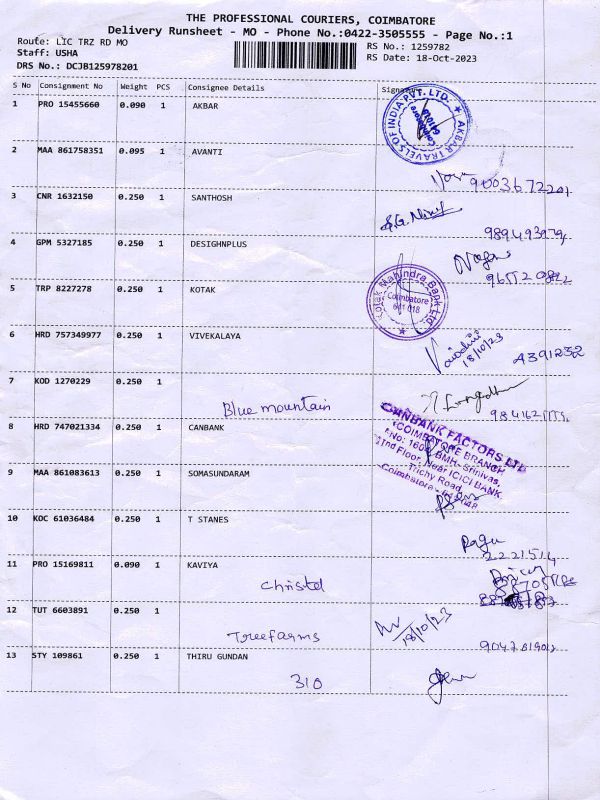 THE PROFESSIONAL COURIERS, COIMBATORE
Delivery Runsheet - MO - Phone No.:0422-3505555 - Page No.:1
Route: LIC TRZ RD MO
RS No.: 1259782
Staff: USHA
RS Date: 18-Oct-2023
DRS No.: DCJB125978201
S No Consignment No Weight PCS Consignee Details Signature
1 PRO 15455660 0.090 1 AKBAR
AKBAR TRAVELS OF INDIA PVT. LTD.
Coimbatore
2 MAA 861758351 0.095 1 AVANTI
9003672201
3 CNR 1632150 0.250 1 SANTHOSH
4 GPM 5327185 0.250 1 DESIGHNPLUS
5 TRP 8227278 0.250 1 KOTAK
Kotak Mahindra Bank Ltd.
Coimbatore
641 018
6 HRD 757349977 0.250 1 VIVEKALAYA
18/10/23
A391232
7 KOD 1270229 0.250 1
Blue mountain
8 HRD 747021334 0.250 1 CANBANK
CANBANK FACTORS LTD
COIMBATORE BRANCH
BMR-Srinivas,
IInd Floor, Near ICICI BANK
Trichy Road,
Coimbatore
9 MAA 861083613 0.250 1 SOMASUNDARAM
10 KOC 61036484 0.250 1 T STANES
Ragu
2221514
11 PRO 15169811 0.090 1 KAVIYA
Christel
12 TUT 6603891 0.250 1
Treefarms
18/10/23
13 STY 109861 0.250 1 THIRU GUNDAN
310